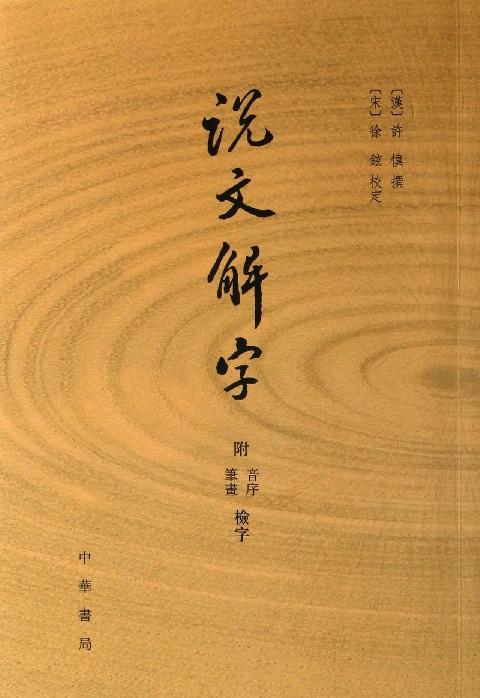 〔漢〕許 慎 撰
〔宋〕徐 鉉 校定
说文解字
附
音序
筆畫
檢字
中華書局